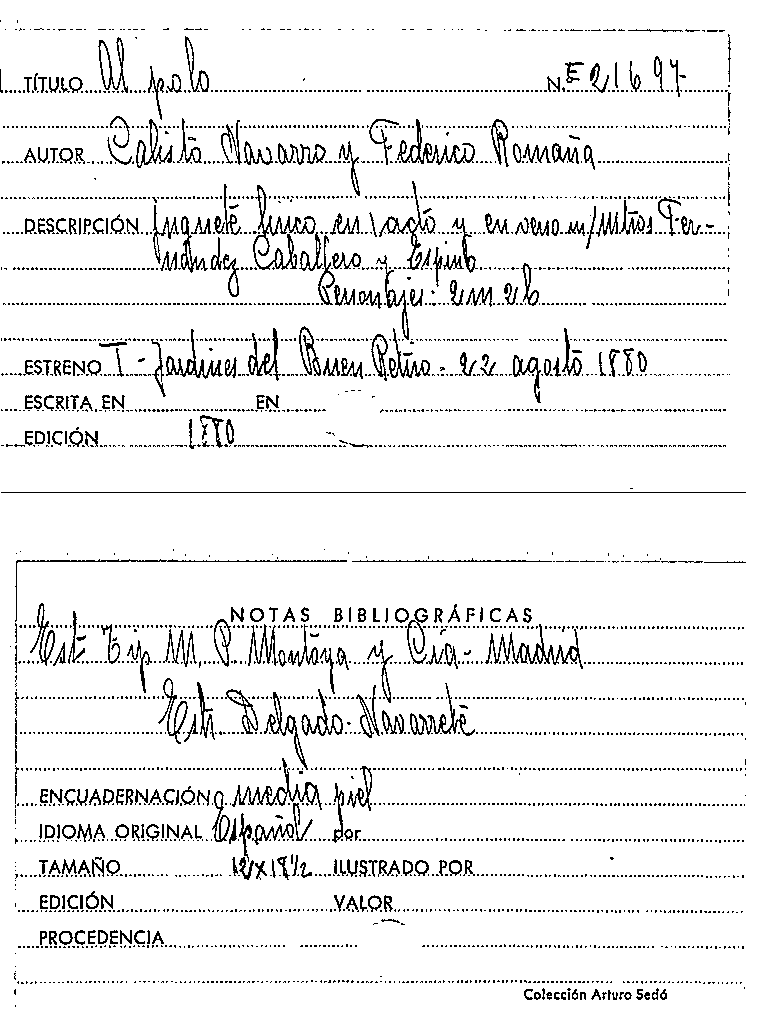 TÍTULO Al polo N. E 21697
AUTOR Calisto Navarro y Federico Romaña
DESCRIPCIÓN Juguete lírico en 1 acto y en verso m/Mtros Fer-
nández Caballero y Espino
Personajes: 2m 2h
ESTRENO T - Jardines del Buen Retiro - 22 agosto 1880
ESCRITA EN EN
EDICIÓN 1880
NOTAS BIBLIOGRÁFICAS
Est Tip M. P. Montoya y Cía - Madrid
Estr. Delgado-Navarrete
ENCUADERNACIÓN media piel
IDIOMA ORIGINAL Español por
TAMAÑO 12x18½ ILUSTRADO POR
EDICIÓN VALOR
PROCEDENCIA
Colección Arturo Sedó